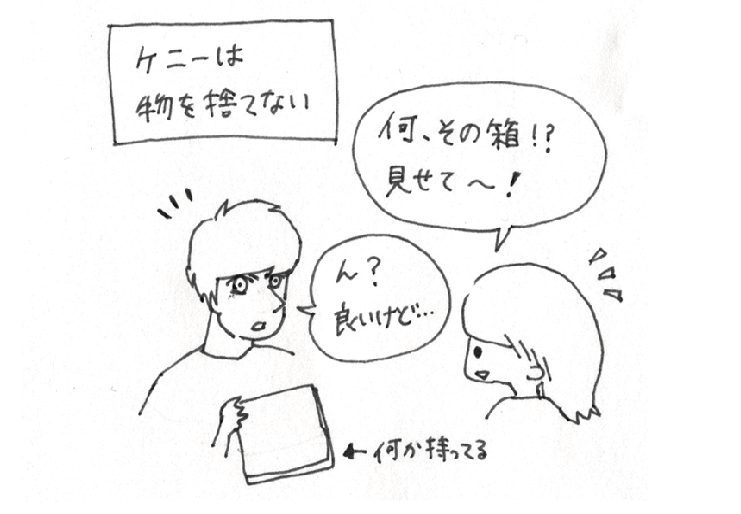 ケニーは
物を捨てない
何、その箱!?
見せて〜!
ん?
良いけど…
←何か持ってる